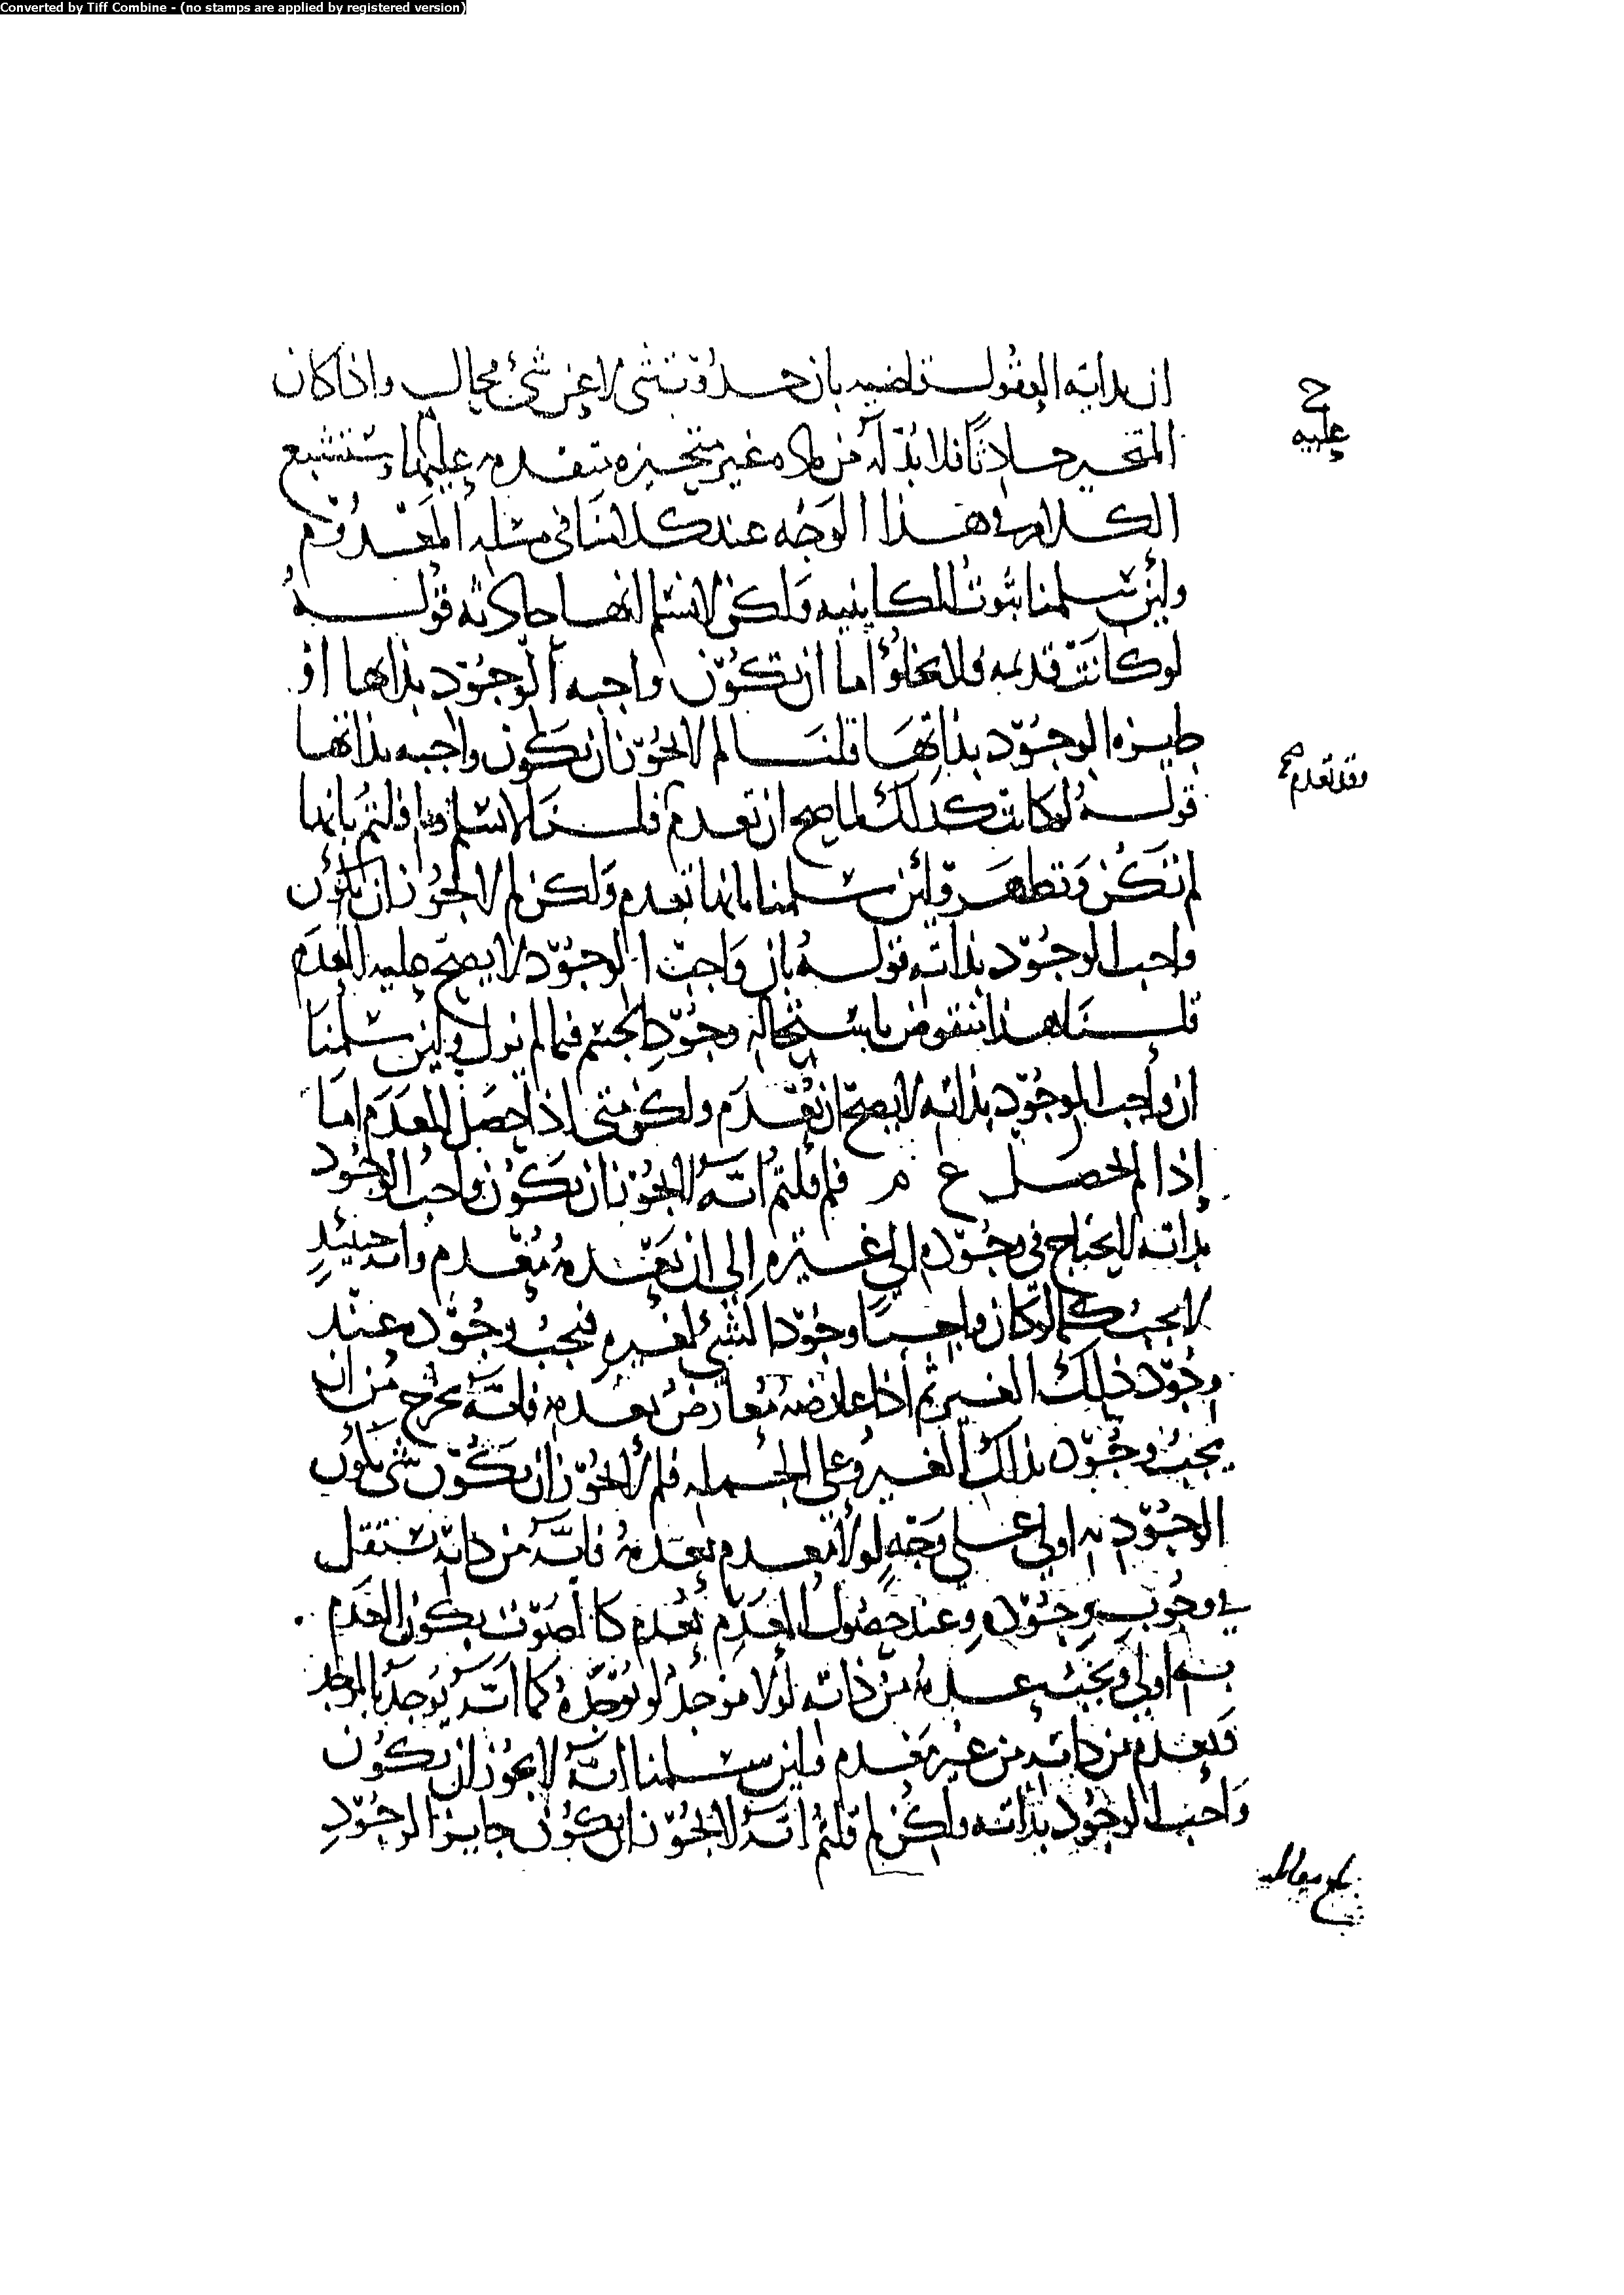 Converted by Tiff Combine - (no stamps are applied by registered version)
ان بداية العقول قاضية بان حدوث شي لا عن شئ محال واذا كان
المتحيز حادثا فلا بد له من مادة غير متحيزه متقدمه عليها وسنشبع
الكلام في هذا الوجه عند كلامنا في مسلة المعدوم
ولئن سلمنا ثبوت الكاينيه ولكن لا نسلم انها حادثه قوله
لو كانت قديمه فلا يخلو اما ان تكون واجبه الوجود بذاتها او
جايزه الوجود بذاتها قلنا لم لا يجوز ان تكون واجبه بذاتها
قوله لو كانت كذلك لما صح ان تعدم قلنا لا نسلم وما قلتم بانها
لم تكن وتظهر ولئن سلمنا بانها تعدم ولكن لم لا يجوز ان تكون
واجب الوجود بذاته قوله بان واجب الوجود لا يصح عليه العدم
قلنا هذا منقوض باستحالة وجود الجسم فيما لم يزل ولئن سلمنا
ان واجب الوجود بذاته لا يصح ان يعدم ولكن متى اذا حصل المعدم اما
إذا لم يحصل ع م فلم قلتم انه لا يجوز ان يكون واجب الوجود
بذاته لا يحتاج في وجوده الى غيره إلى ان يعدمه معدم وانه حينئذ
لا يجب كما لو كان واجبا وجود الشي لغيره فيجب وجوده عند
وجود ذلك الغير ثم اذا عارضه معارض يعدمه فانه يخرج من ان
يجب وجوده بذلك الغير وعلى الجمله فلم لا يجوز ان يكون شي يكون
الوجود به اولى على وجه لولا معدم يعدمه فانه من ذاته يستقل
في وجوب وجوده وعند حصول المعدم يعدم كالصوت يكون العدم
به اولى ويجب عدمه من ذاته لولا موجد لو يوجده كما انه يوجد بالموجد
فيعدم من ذاته من غير معدم ولين سلمنا انه لا يجوز ان يكون
واجب الوجود بذاته ولكن لم قلتم انه لا يجوز ان يكون جايز الوجود
ح
عليه
وقد تقدم صح
بلغ مقابلة